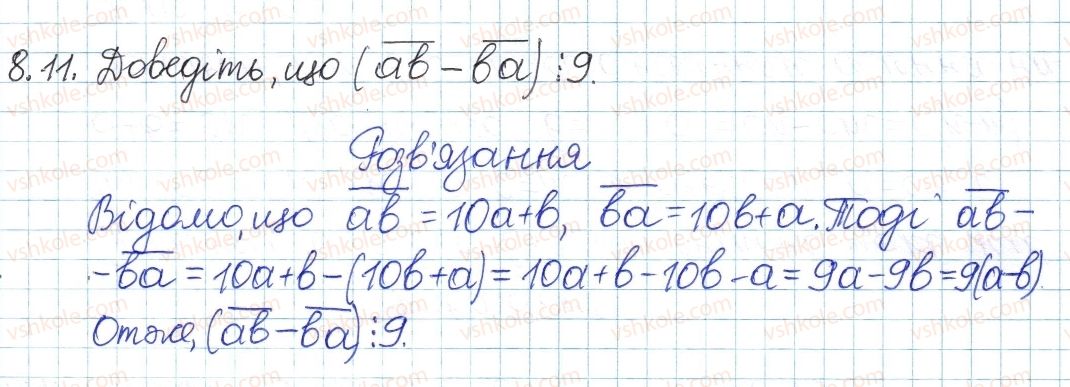 8.11. Доведіть, що (a̅b̅ − b̅a̅) ⋮ 9.
Розв'язання
Відомо, що a̅b̅ = 10a+b, b̅a̅ = 10b+a. Тоді a̅b̅ −
− b̅a̅ = 10a+b−(10b+a) = 10a+b−10b−a = 9a−9b = 9(a−b).
Отже, (a̅b̅ − b̅a̅) ⋮ 9.
vshkole.com